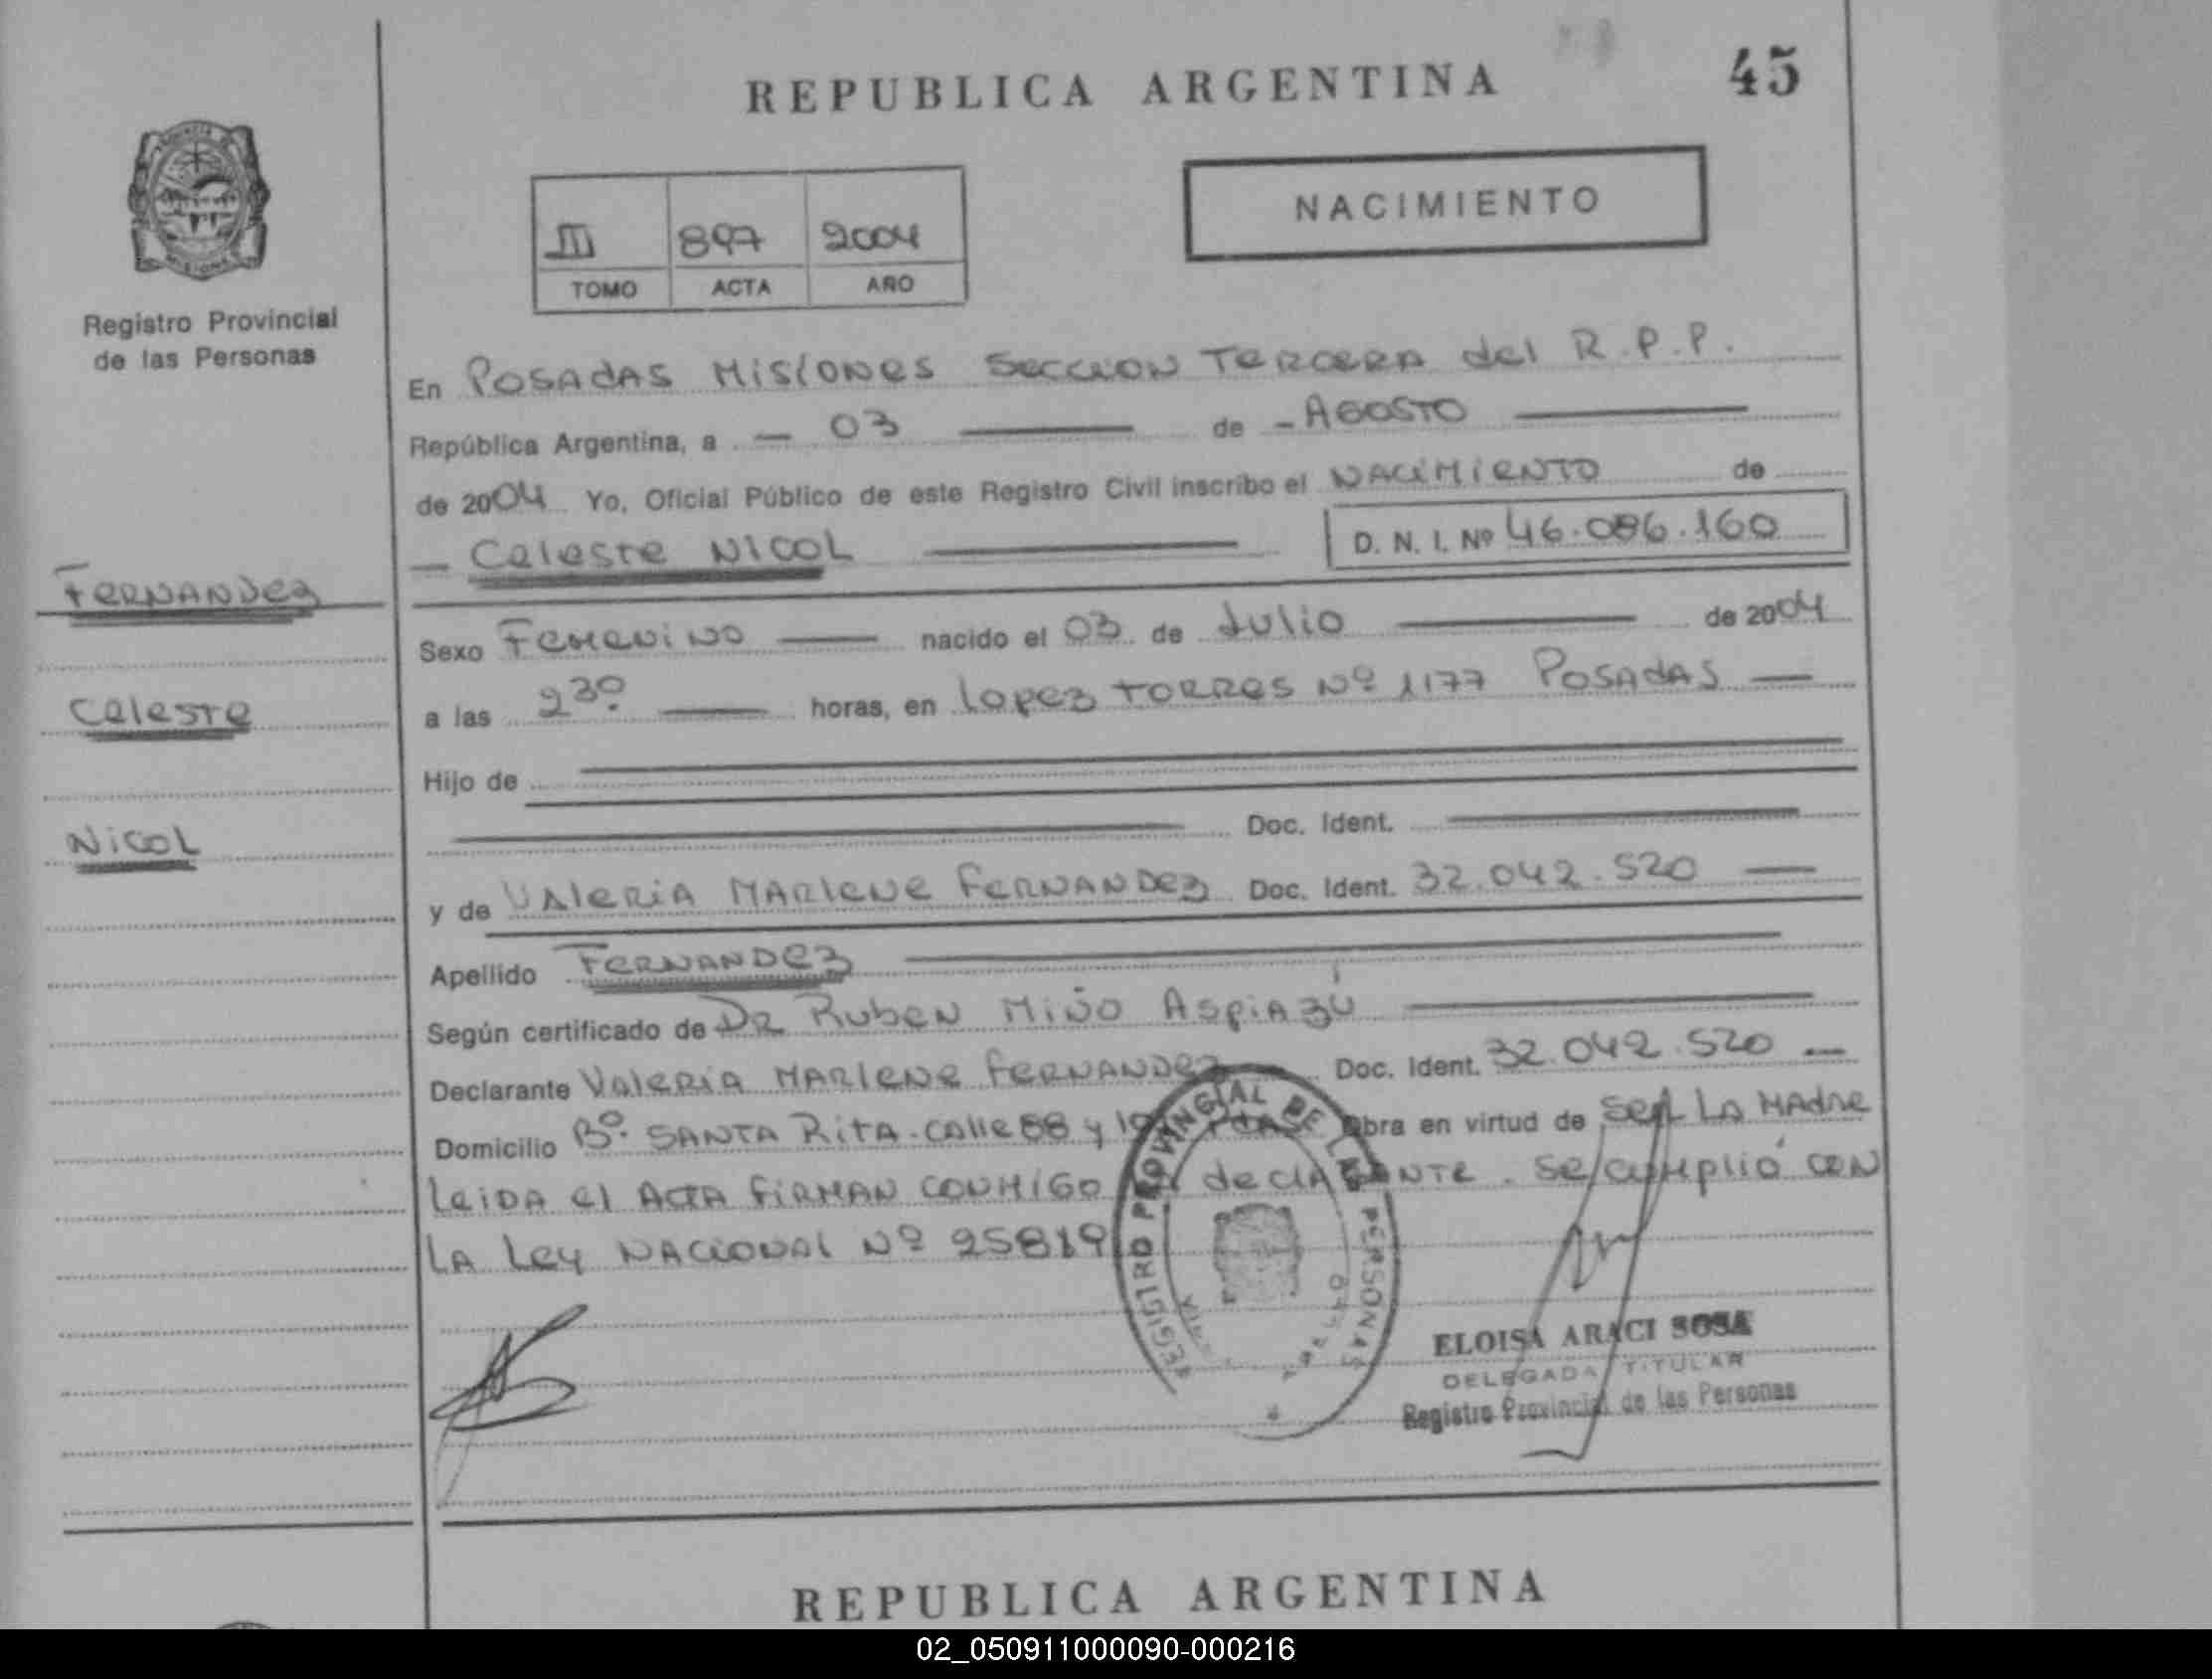 REPUBLICA ARGENTINA
45
NACIMIENTO
III 897 2004
TOMO ACTA AÑO
Registro Provincial
de las Personas
En POSADAS MISIONES SECCION TERCERA del R.P.P.
República Argentina, a 03 de AGOSTO
de 2004 Yo, Oficial Público de este Registro Civil inscribo el NACIMIENTO de
Celeste NICOL D. N. I. Nº 46.086.160
FERNANDEZ
Celeste
NICOL
Sexo FEMENINO nacido el 03 de Julio de 2004
a las 23º horas, en Lopez TORRES Nº 1177 POSADAS
Hijo de
Doc. Ident.
y de VALERIA MARLENE FERNANDEZ Doc. Ident. 32.042.520
Apellido FERNANDEZ
Según certificado de DR RUBEN MIÑO ASPIAZÚ
Declarante VALERIA MARLENE FERNANDEZ Doc. Ident. 32.042.520
Domicilio Bº. SANTA RITA-Calle 88 y Obra en virtud de SER LA MADRE
LEIDA el ACTA FIRMAN CONMIGO declARANTE. Se cumplió CON
LA Ley NACIONAL Nº 25819
REGISTRO PROVINCIAL DE LAS PERSONAS
ELOISA ARACI SOSA
DELEGADA TITULAR
Registro Provincial de las Personas
REPUBLICA ARGENTINA
02_050911000090-000216